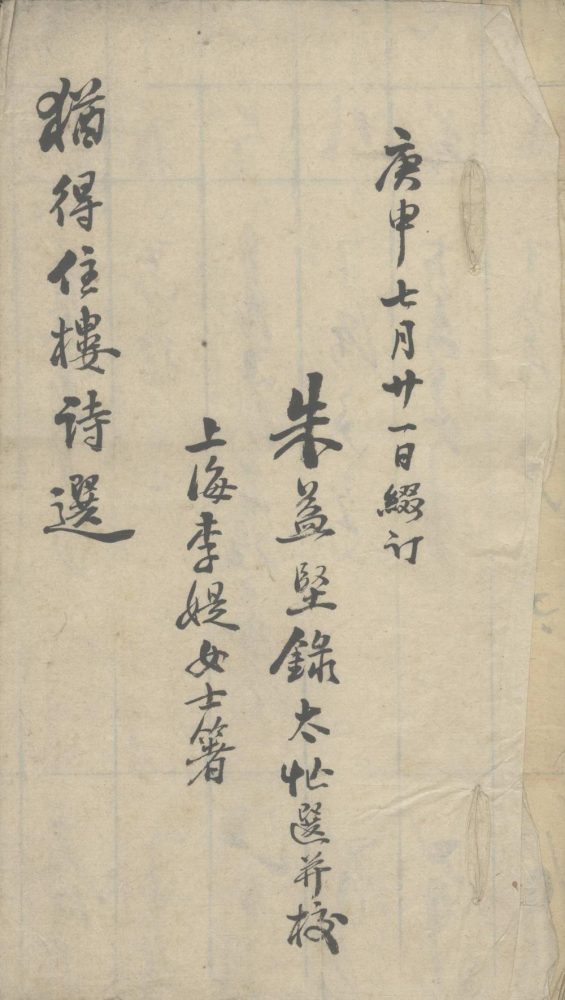 庚申七月廿一日綴订
朱益堅錄太忙選并校
上海李媞女士箸
猶得住樓詩選